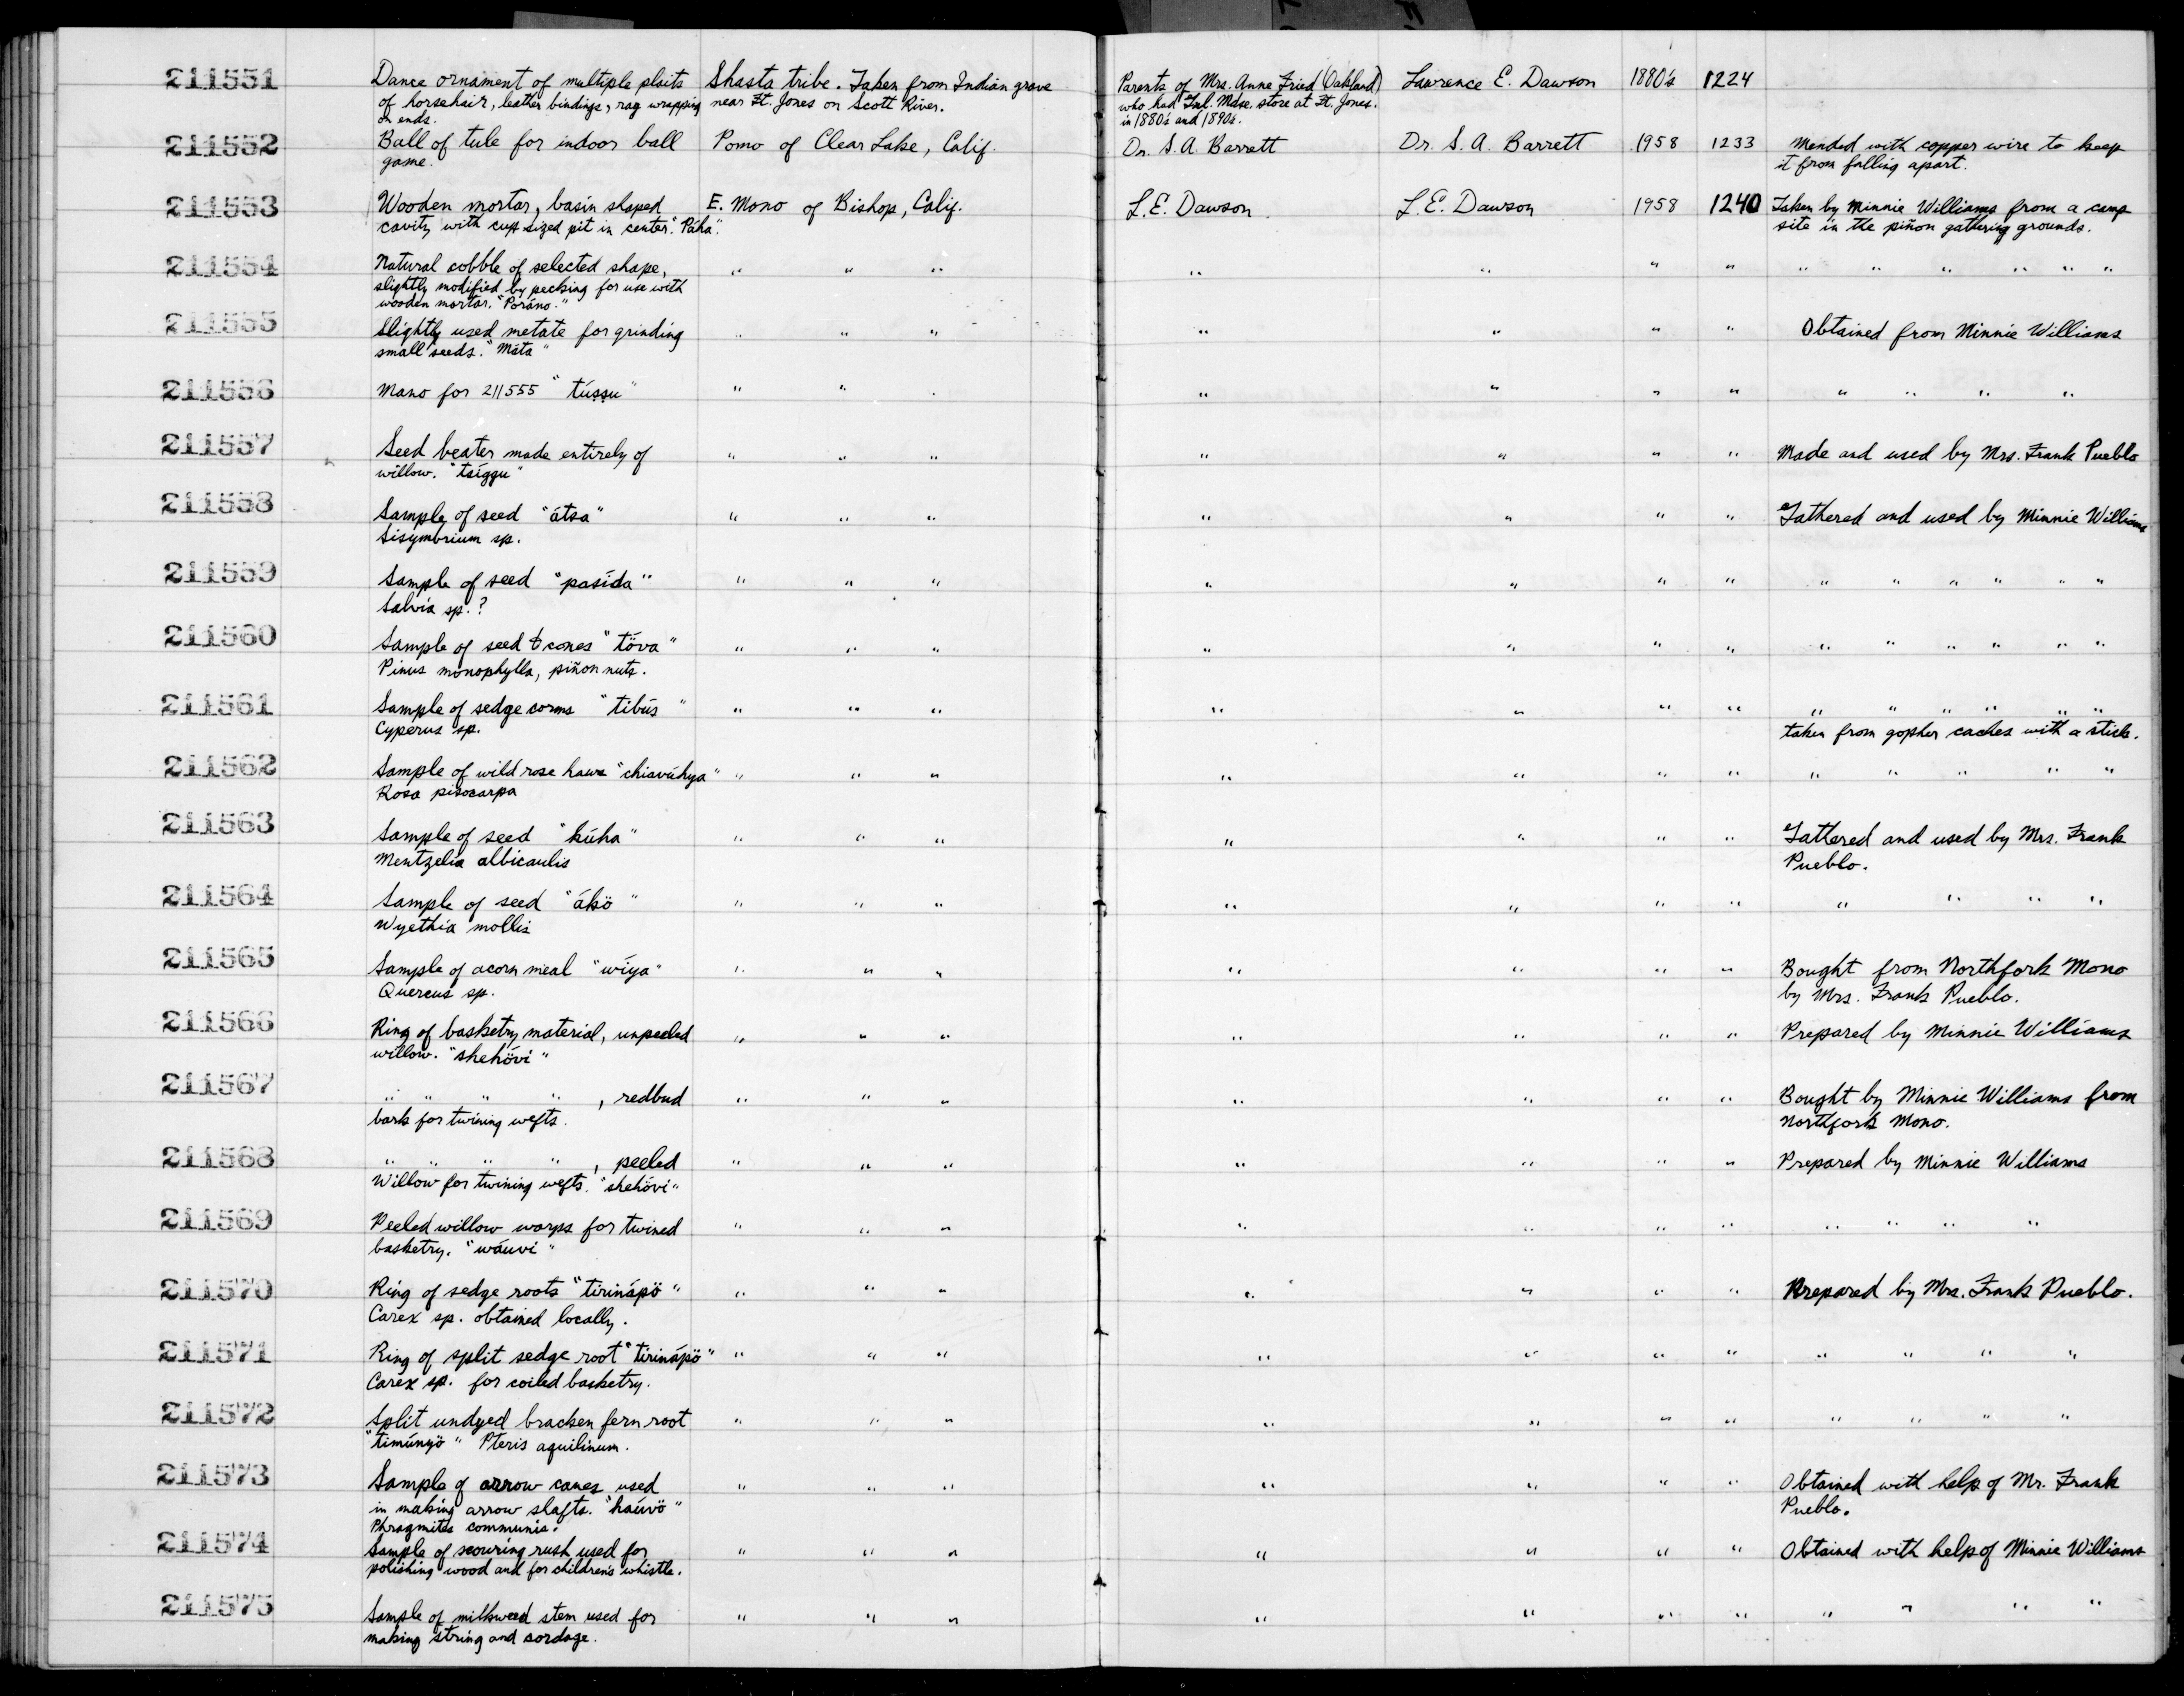 211551 Dance ornament of multiple plaits Shasta tribe. Taken from Indian grave Parents of Mrs. Anne Fried (Oakland) Lawrence E. Dawson 1880's 1224
of horsehair, leather bindings, rag wrapping near Ft. Jones on Scott River. who had Gnl. Mdse. store at Ft. Jones.
on ends. in 1880's and 1890's.
211552 Ball of tule for indoor ball Pomo of Clear Lake, Calif. Dr. S. A. Barrett Dr. S. A. Barrett 1958 1233 Mended with copper wire to keep
game. it from falling apart.
211553 Wooden mortar, basin shaped E. Mono of Bishop, Calif. L. E. Dawson L. E. Dawson 1958 1240 Taken by Minnie Williams from a camp
cavity with cup sized pit in center. "Páha". site in the piñon gathering grounds.
211554 Natural cobble of selected shape, " " " " " " " " " " " " "
slightly modified by pecking for use with
wooden mortar. "Poráno."
211555 Slightly used metate for grinding " " " " " " " Obtained from Minnie Williams
small seeds. "Máta"
211556 Mano for 211555 "tússu" " " " " " " " " " " "
211557 Seed beater made entirely of " " " " " " " Made and used by Mrs. Frank Pueblo
willow. "tsíggu"
211558 Sample of seed "átsa" " " " " " " " Gathered and used by Minnie Williams
Sisymbrium sp.
211559 Sample of seed "pasída" " " " " " " " " " " " " "
Salvia sp.?
211560 Sample of seed & cones "töva" " " " " " " " " " " " " "
Pinus monophylla, piñon nuts.
211561 Sample of sedge corms "tibús" " " " " " " " " " " " " "
Cyperus sp. taken from gopher caches with a stick.
211562 Sample of wild rose haws "chiavúhya" " " " " " " " " " " " "
Rosa pisocarpa
211563 Sample of seed "kúha" " " " " " " " Gathered and used by Mrs. Frank
Mentzelia albicaulis Pueblo.
211564 Sample of seed "ákö" " " " " " " " " " " "
Wyethia mollis
211565 Sample of acorn meal "wíya" " " " " " " " Bought from Northfork Mono
Quercus sp. by Mrs. Frank Pueblo.
211566 Ring of basketry material, unpeeled " " " " " " " Prepared by Minnie Williams
willow. "shehövi"
211567 " " " " , redbud " " " " " " " Bought by Minnie Williams from
bark for twining wefts. Northfork Mono.
211568 " " " " , peeled " " " " " " " Prepared by Minnie Williams
Willow for twining wefts. "shehövi"
211569 Peeled willow warps for twined " " " " " " " " " " "
basketry. "wáuvi"
211570 Ring of sedge roots "tirinápö" " " " " " " " Prepared by Mrs. Frank Pueblo.
Carex sp. obtained locally.
211571 Ring of split sedge root "tirinápö" " " " " " " " " " " "
Carex sp. for coiled basketry.
211572 Split undyed bracken fern root " " " " " " " " " " "
"timúnyö" Pteris aquilinum.
211573 Sample of arrow canes used " " " " " " " Obtained with help of Mr. Frank
in making arrow shafts. "haúvö" Pueblo.
Phragmites communis.
211574 Sample of scouring rush used for " " " " " " " Obtained with help of Minnie Williams
polishing wood and for children's whistle.
211575 Sample of milkweed stem used for " " " " " " " " " " "
making string and cordage.